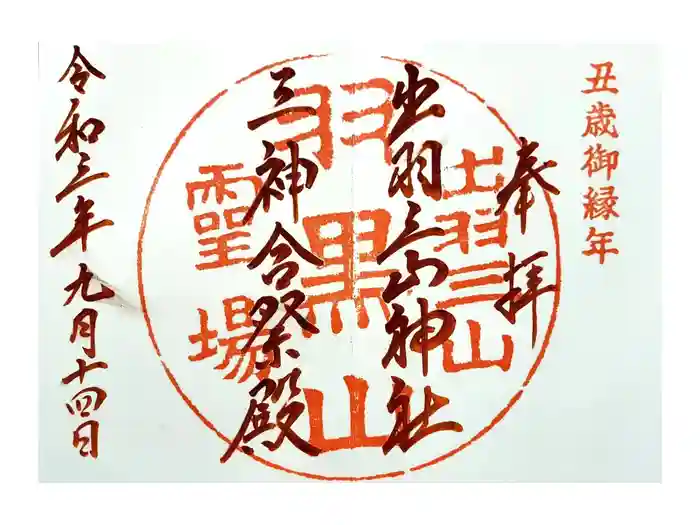 丑歳御縁年
奉拝
出羽三山神社
三神合祭殿
出羽三山
羽黒山
霊場
令和三年九月十四日